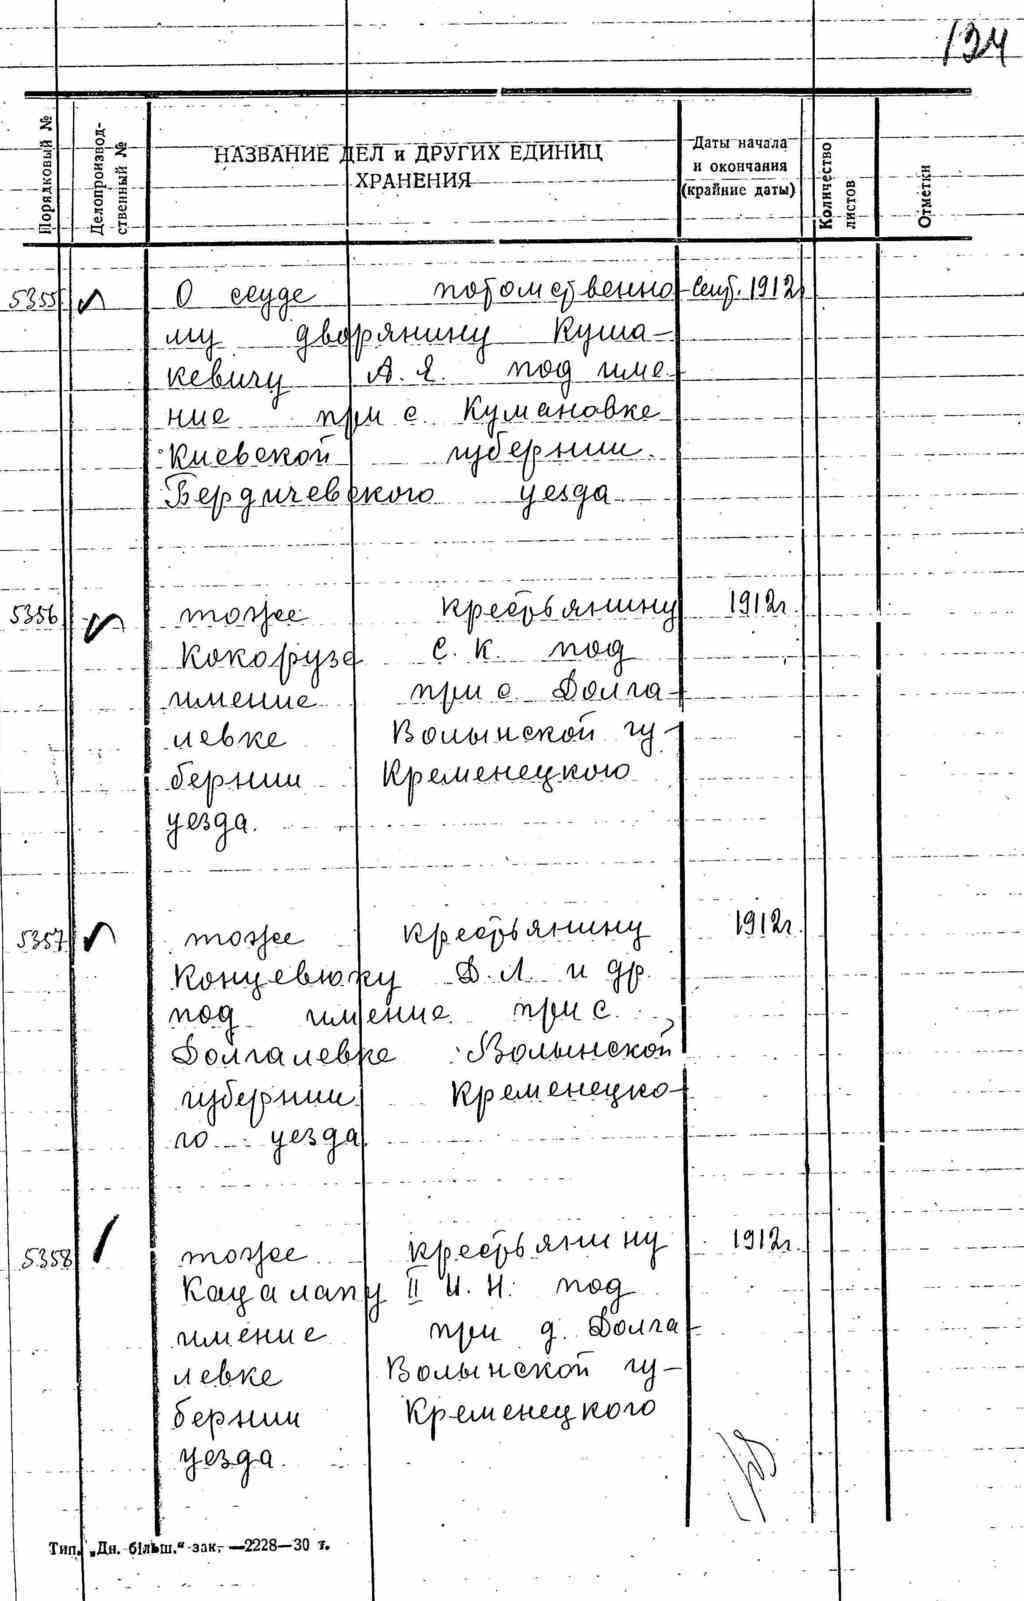 134
Порядковый №
Делопроизвод-
ственный №
НАЗВАНИЕ ДЕЛ и ДРУГИХ ЕДИНИЦ
ХРАНЕНИЯ
Даты начала
и окончания
(крайние даты)
Количество
листов
Отметки
5355 О ссуде потомственно- Сент. 1912
му дворянину Куша-
кевичу А.Я. под име-
ние при с. Кумановке
Киевской губернии
Бердичевского уезда
5356 тоже крестьянину 1912г.
Кокорузе С.К. под
имение при с. Долга-
левке Волынской гу-
бернии Кременецкого
уезда.
5357 тоже крестьянину 1912г.
Концевюку Д.Л. и др.
под имение при с.
Долгалевке Волынской
губернии Кременецко-
го уезда
5358 тоже крестьянину 1912г.
Кацалапу II И.Н. под
имение при д. Долга-
левке Волынской гу-
бернии Кременецкого
уезда.
Тип. „Дн. більш." зак. —2228—30 т.